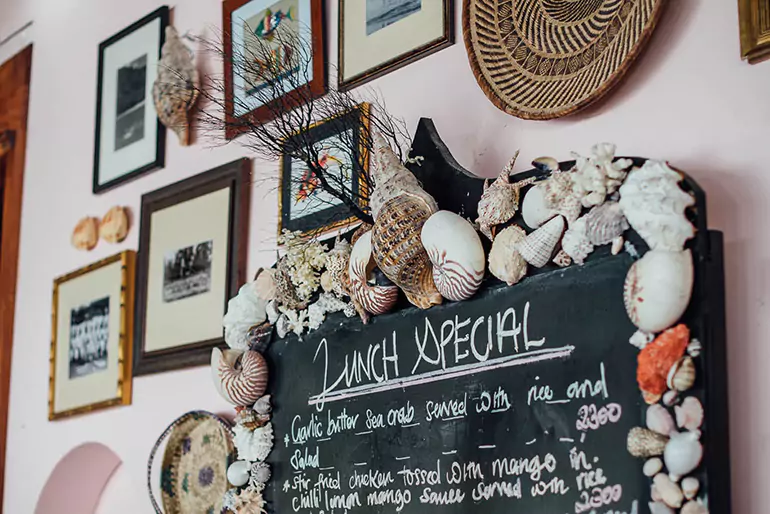 LUNCH SPECIAL
* Garlic butter sea crab served with rice and
Salad _ _ _ _ _ _ _ 2200
* Stir fried chicken tossed with mango in.
chilli lemon mango sauce served with rice
2200